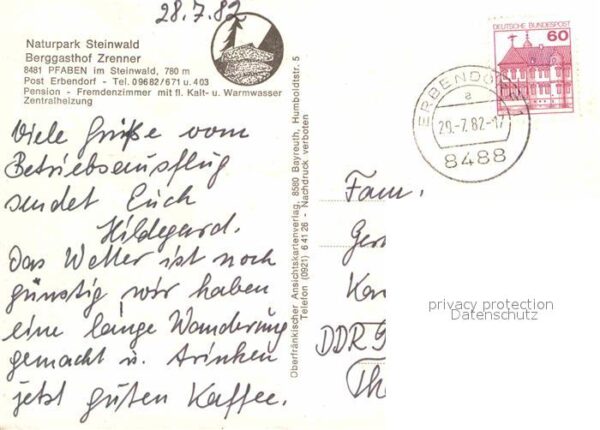 28.7.82
Naturpark Steinwald
Berggasthof Zrenner
8481 PFABEN im Steinwald, 780 m
Post Erbendorf - Tel. 09682/671 u. 403
Pension - Fremdenzimmer mit fl. Kalt- u. Warmwasser
Zentralheizung
Viele Grüße vom
Betriebsausflug
sendet Euch
Hildegard.
Das Wetter ist noch
günstig wir haben
eine lange Wanderung
gemacht u. trinken
jetzt guten Kaffee.
Oberfränkischer Ansichtskartenverlag, 8580 Bayreuth, Humboldtstr. 5
Telefon (0921) 6 41 26 - Nachdruck verboten
DEUTSCHE BUNDESPOST
60
ERBENDORF
a
29.-7.82-17
8488
Fam.
Ger
Kar
DDR
Th
privacy protection
Datenschutz